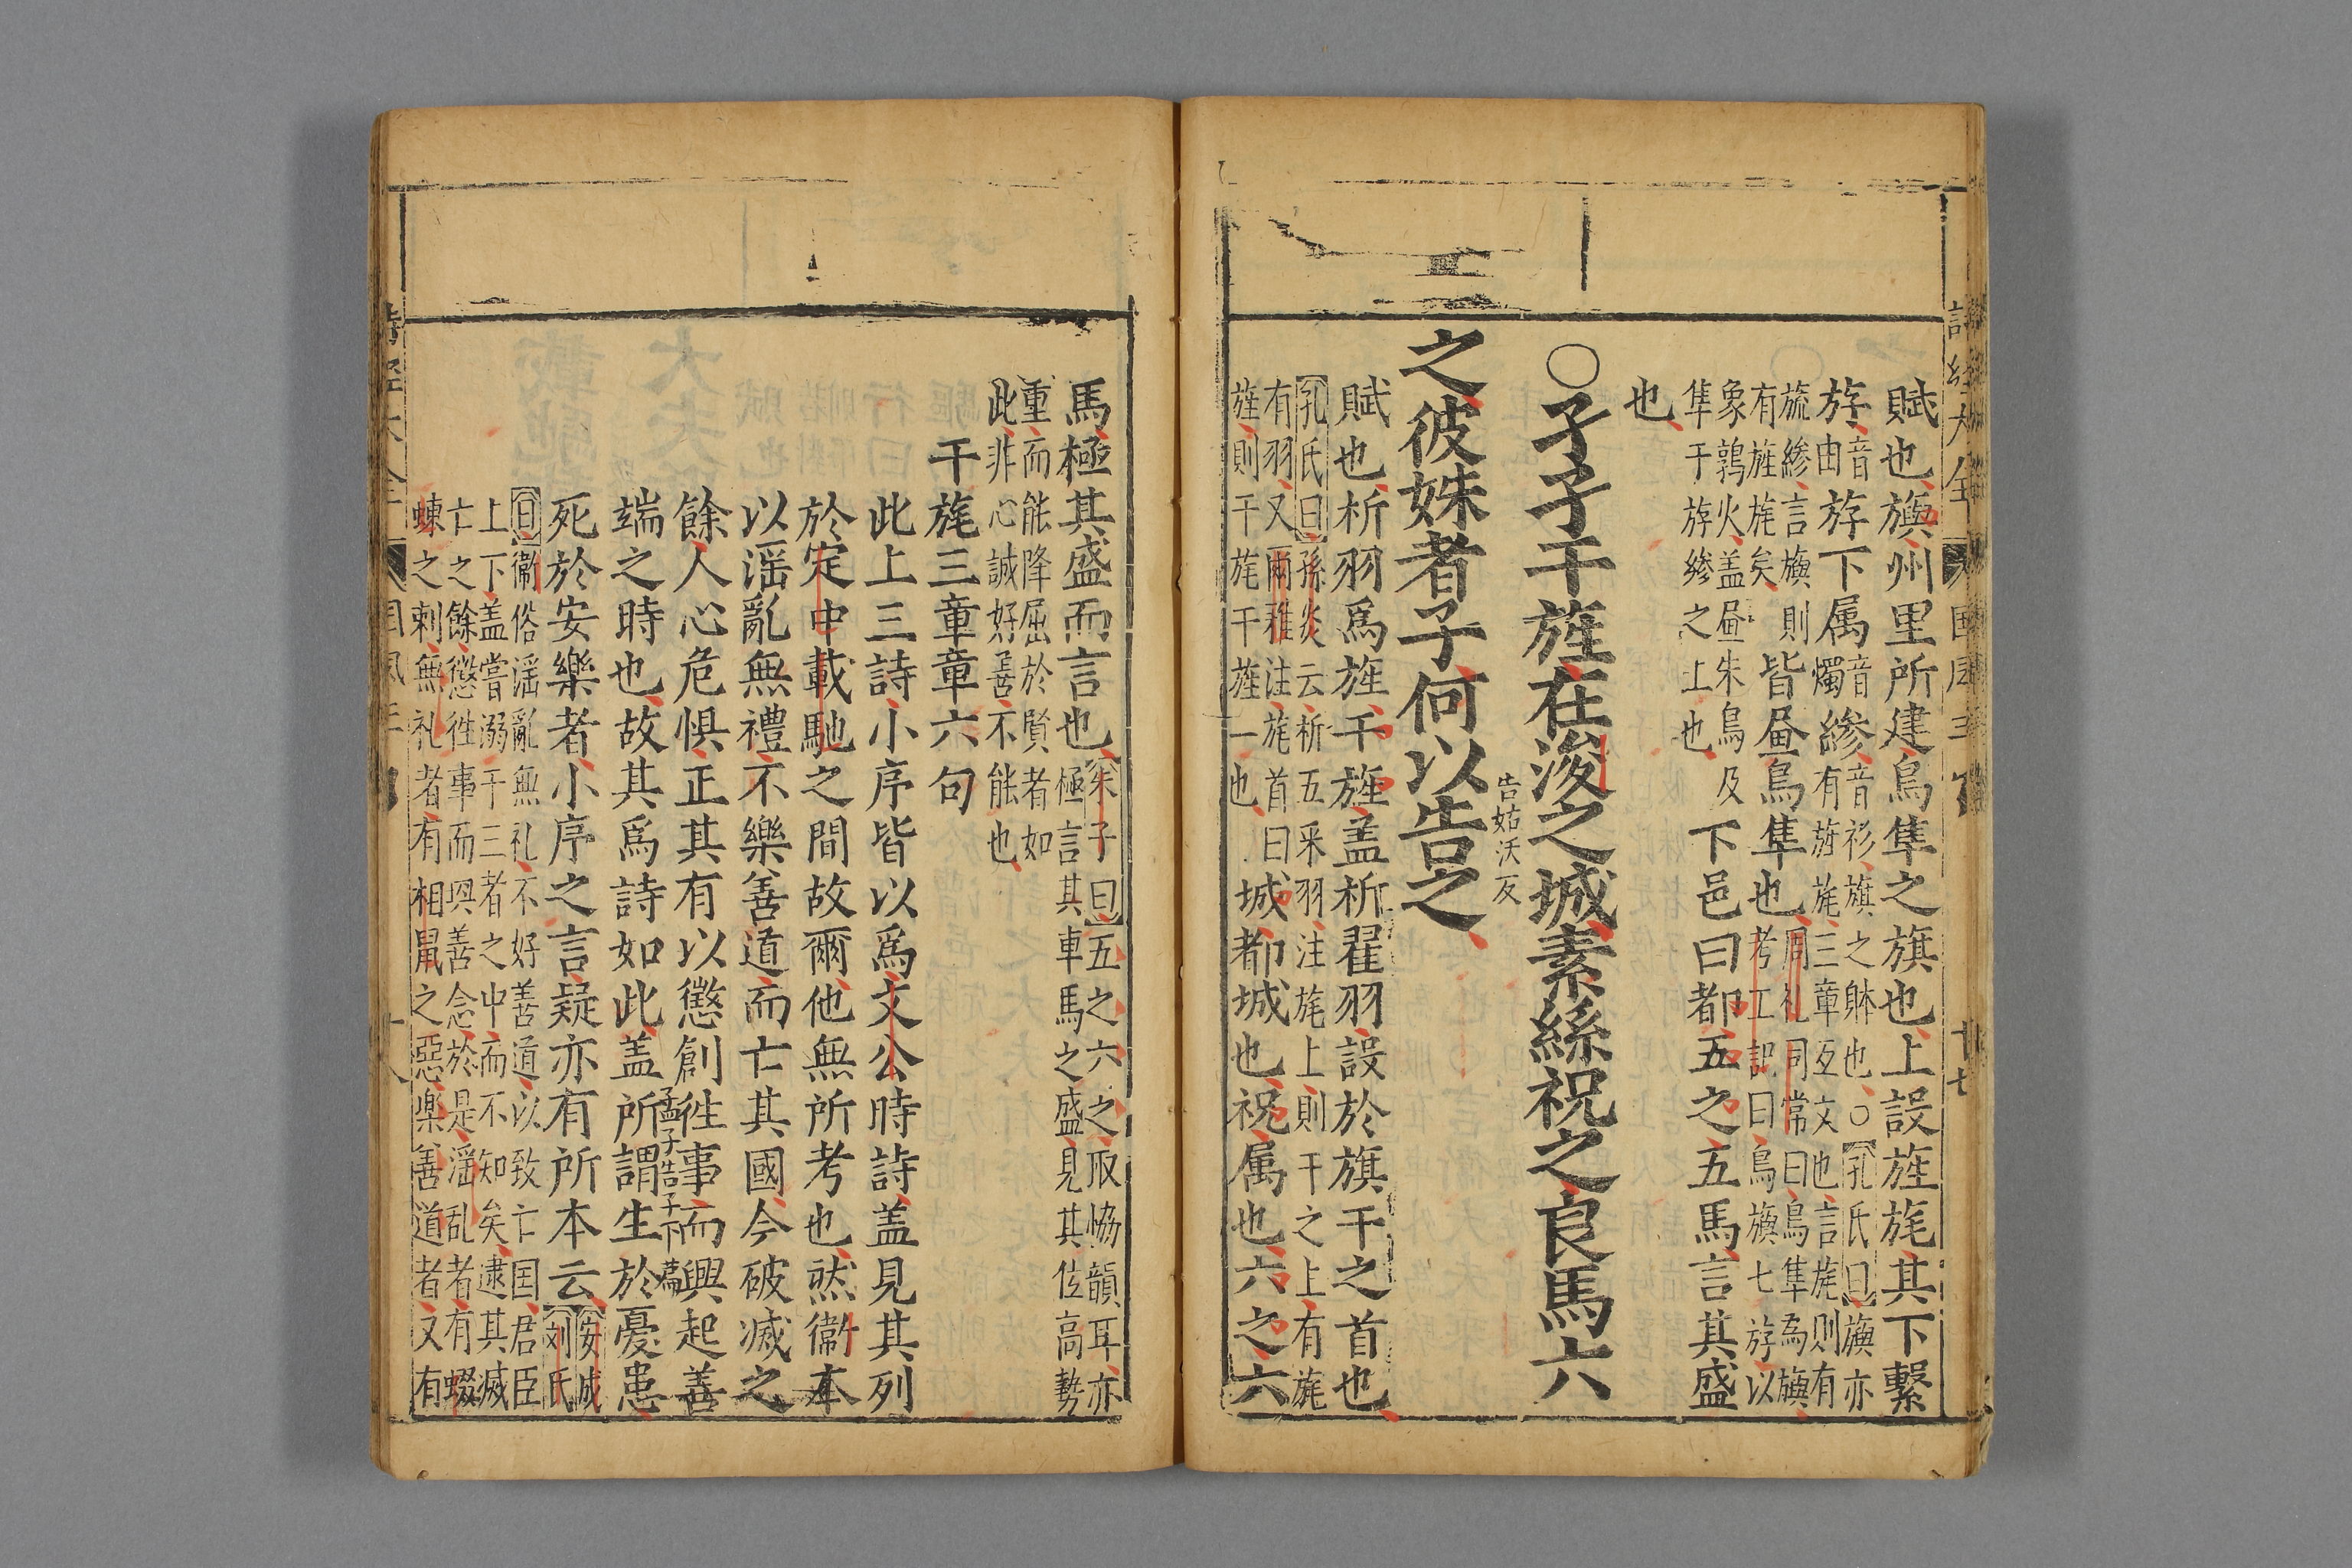 賦也旟州里所建鳥隼之旗也上設旌旄其下繫
斿音由斿下属音燭縿音衫旗之躰也○孔氏曰旟亦
有旒旄三章互文也言旄則有
旒縿言旟則皆畫鳥隼也周礼司常曰鳥隼為旟
有旌旄矣考工記曰鳥旟七斿以
象鶉火盖畫朱鳥及
隼于斿縿之上也下邑曰都五之五馬言其盛
也
○孑孑干旌在浚之城素絲祝之良馬六
之彼姝者子何以告之告姑沃反
賦也析羽爲旌干旌盖析翟羽設於旗干之首也
孔氏曰孫炎云析五采羽注旄上則干之上有旄
有羽又爾雅注旄首曰
旌則干旄干旌一也城都城也祝属也六之六
詩經大全
國風三
十七
馬極其盛而言也朱子曰五之六之取協韻耳亦
極言其車馬之盛見其位高勢
重而能降屈於賢者如
此非心誠好善不能也
干旄三章章六句
此上三詩小序皆以爲文公時詩盖見其列
於定中載馳之間故爾他無所考也然衞本
以滛亂無禮不樂善道而亡其國今破滅之
餘人心危惧正其有以懲創徃事而興起善
端之時也故其爲詩如此盖所謂生於憂患孟子告子下篇
死於安樂者小序之言疑亦有所本云安成
劉氏
曰衞俗滛亂無礼不好善道以致亡国君臣
上下盖嘗溺于三者之中而不知矣逮其滅
亡之餘懲徃事而興善念於是滛乱者有蝃
蝀之刺無礼者有相鼠之惡樂善道者又有